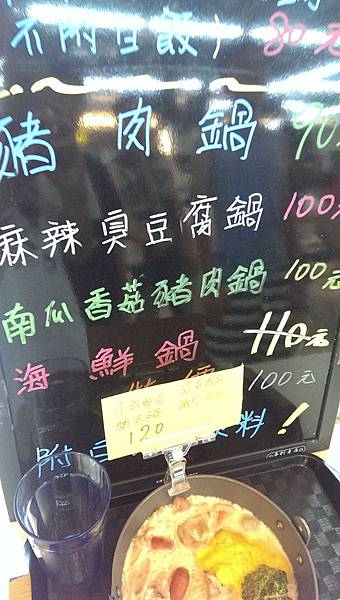 不附白飯) 80元
豬肉鍋 90
麻辣臭豆腐鍋 100
南瓜香菇豬肉鍋 100元
海鮮鍋 110元
100元
120
附白 料!